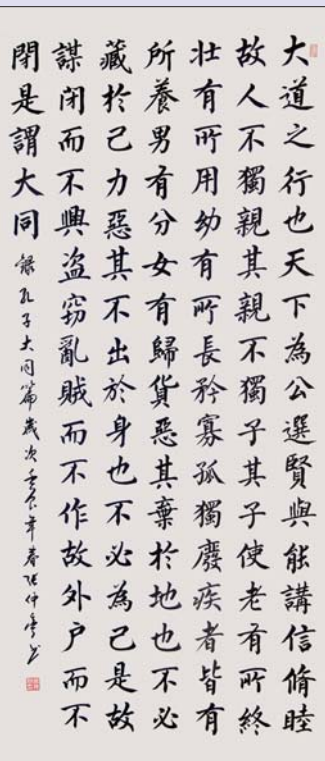 大道之行也天下為公選賢與能講信脩睦
故人不獨親其親不獨子其子使老有所終
壯有所用幼有所長矜寡孤獨廢疾者皆有
所養男有分女有歸貨惡其棄於地也不必
藏於己力惡其不出於身也不必為己是故
謀閉而不興盜窃亂賊而不作故外户而不
閉是謂大同
錄孔子大同篇歲次壬辰年春張仲書